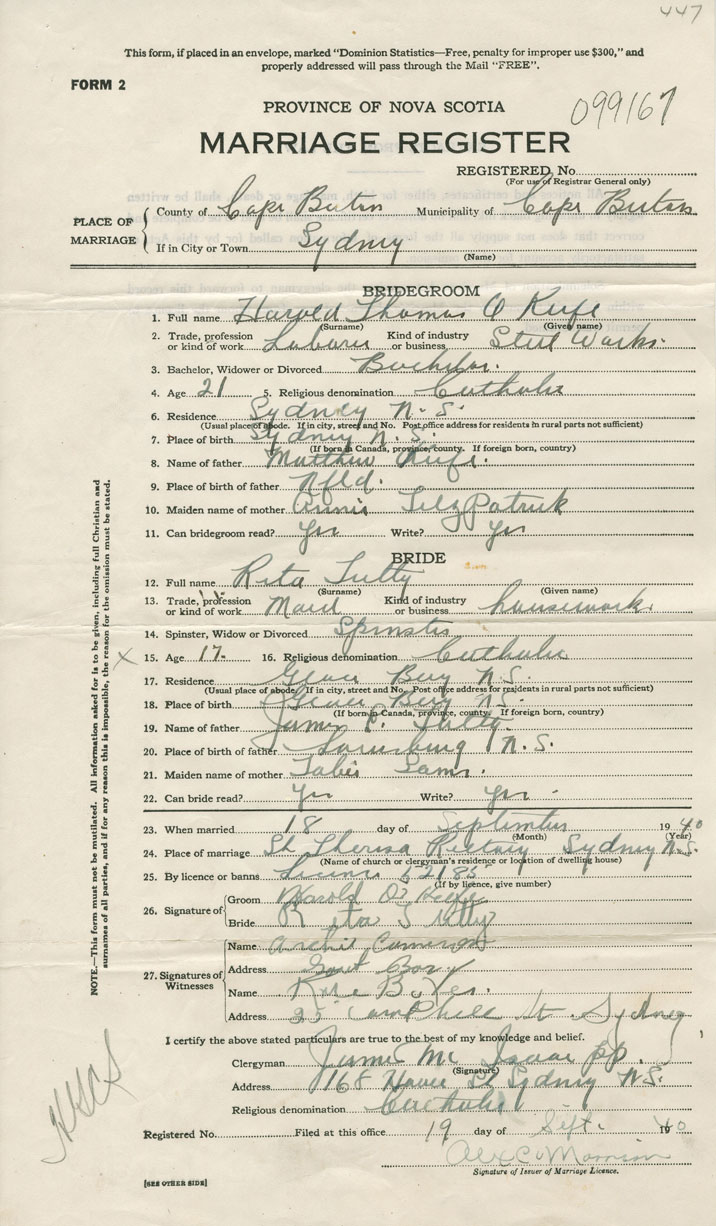 447
This form, if placed in an envelope, marked "Dominion Statistics—Free, penalty for improper use $300," and
properly addressed will pass through the Mail "FREE".
FORM 2
PROVINCE OF NOVA SCOTIA
099167
MARRIAGE REGISTER
REGISTERED No.
(For use of Registrar General only)
PLACE OF MARRIAGE
County of Cape Breton Municipality of Cape Breton
If in City or Town Sydney
(Name)
BRIDEGROOM
1. Full name Harold Thomas O Keefe
(Surname) (Given name)
2. Trade, profession or kind of work Laborer Kind of industry or business Steel Works.
3. Bachelor, Widower or Divorced Bachelor.
4. Age 21 5. Religious denomination Catholic
6. Residence Sydney N. S.
(Usual place of abode. If in city, street and No. Post office address for residents in rural parts not sufficient)
7. Place of birth Sydney N. S.
(If born in Canada, province, county. If foreign born, country)
8. Name of father Matthew Keefe.
9. Place of birth of father Nfld.
10. Maiden name of mother Annie FitzPatrick
11. Can bridegroom read? Yes Write? Yes
BRIDE
12. Full name Rita Tutty
(Surname) (Given name)
13. Trade, profession or kind of work Maid Kind of industry or business housework.
14. Spinster, Widow or Divorced Spinster
X 15. Age 17. 16. Religious denomination Catholic
17. Residence Glace Bay N. S.
(Usual place of abode. If in city, street and No. Post office address for residents in rural parts not sufficient)
18. Place of birth Glace Bay N. S.
(If born in Canada, province, county. If foreign born, country)
19. Name of father James Tutty.
20. Place of birth of father Louisburg N. S.
21. Maiden name of mother
22. Can bride read? Yes Write? Yes.
23. When married 18 day of September 1940
(Month) (Year)
24. Place of marriage St Theresa Rectory Sydney N. S.
(Name of church or clergyman's residence or location of dwelling house)
25. By licence or banns License 52185
(If by licence, give number)
26. Signature of
Groom Harold O'Keefe
Bride Rita Tutty
27. Signatures of Witnesses
Name Archie Cameron
Address
Name Rose
Address 25 Campbell St. Sydney
I certify the above stated particulars are true to the best of my knowledge and belief.
Clergyman James Mc Isaac pp.
(Signature)
Address 168 St Sydney N.S.
Religious denomination Catholic
Registered No. Filed at this office 19 day of Sept. 1940
Alex C. Morrison
Signature of Issuer of Marriage Licence.
[SEE OTHER SIDE]
NOTE.—This form must not be mutilated. All information asked for is to be given, including full Christian and
surnames of all parties, and if for any reason this is impossible, the reason for the omission must be stated.